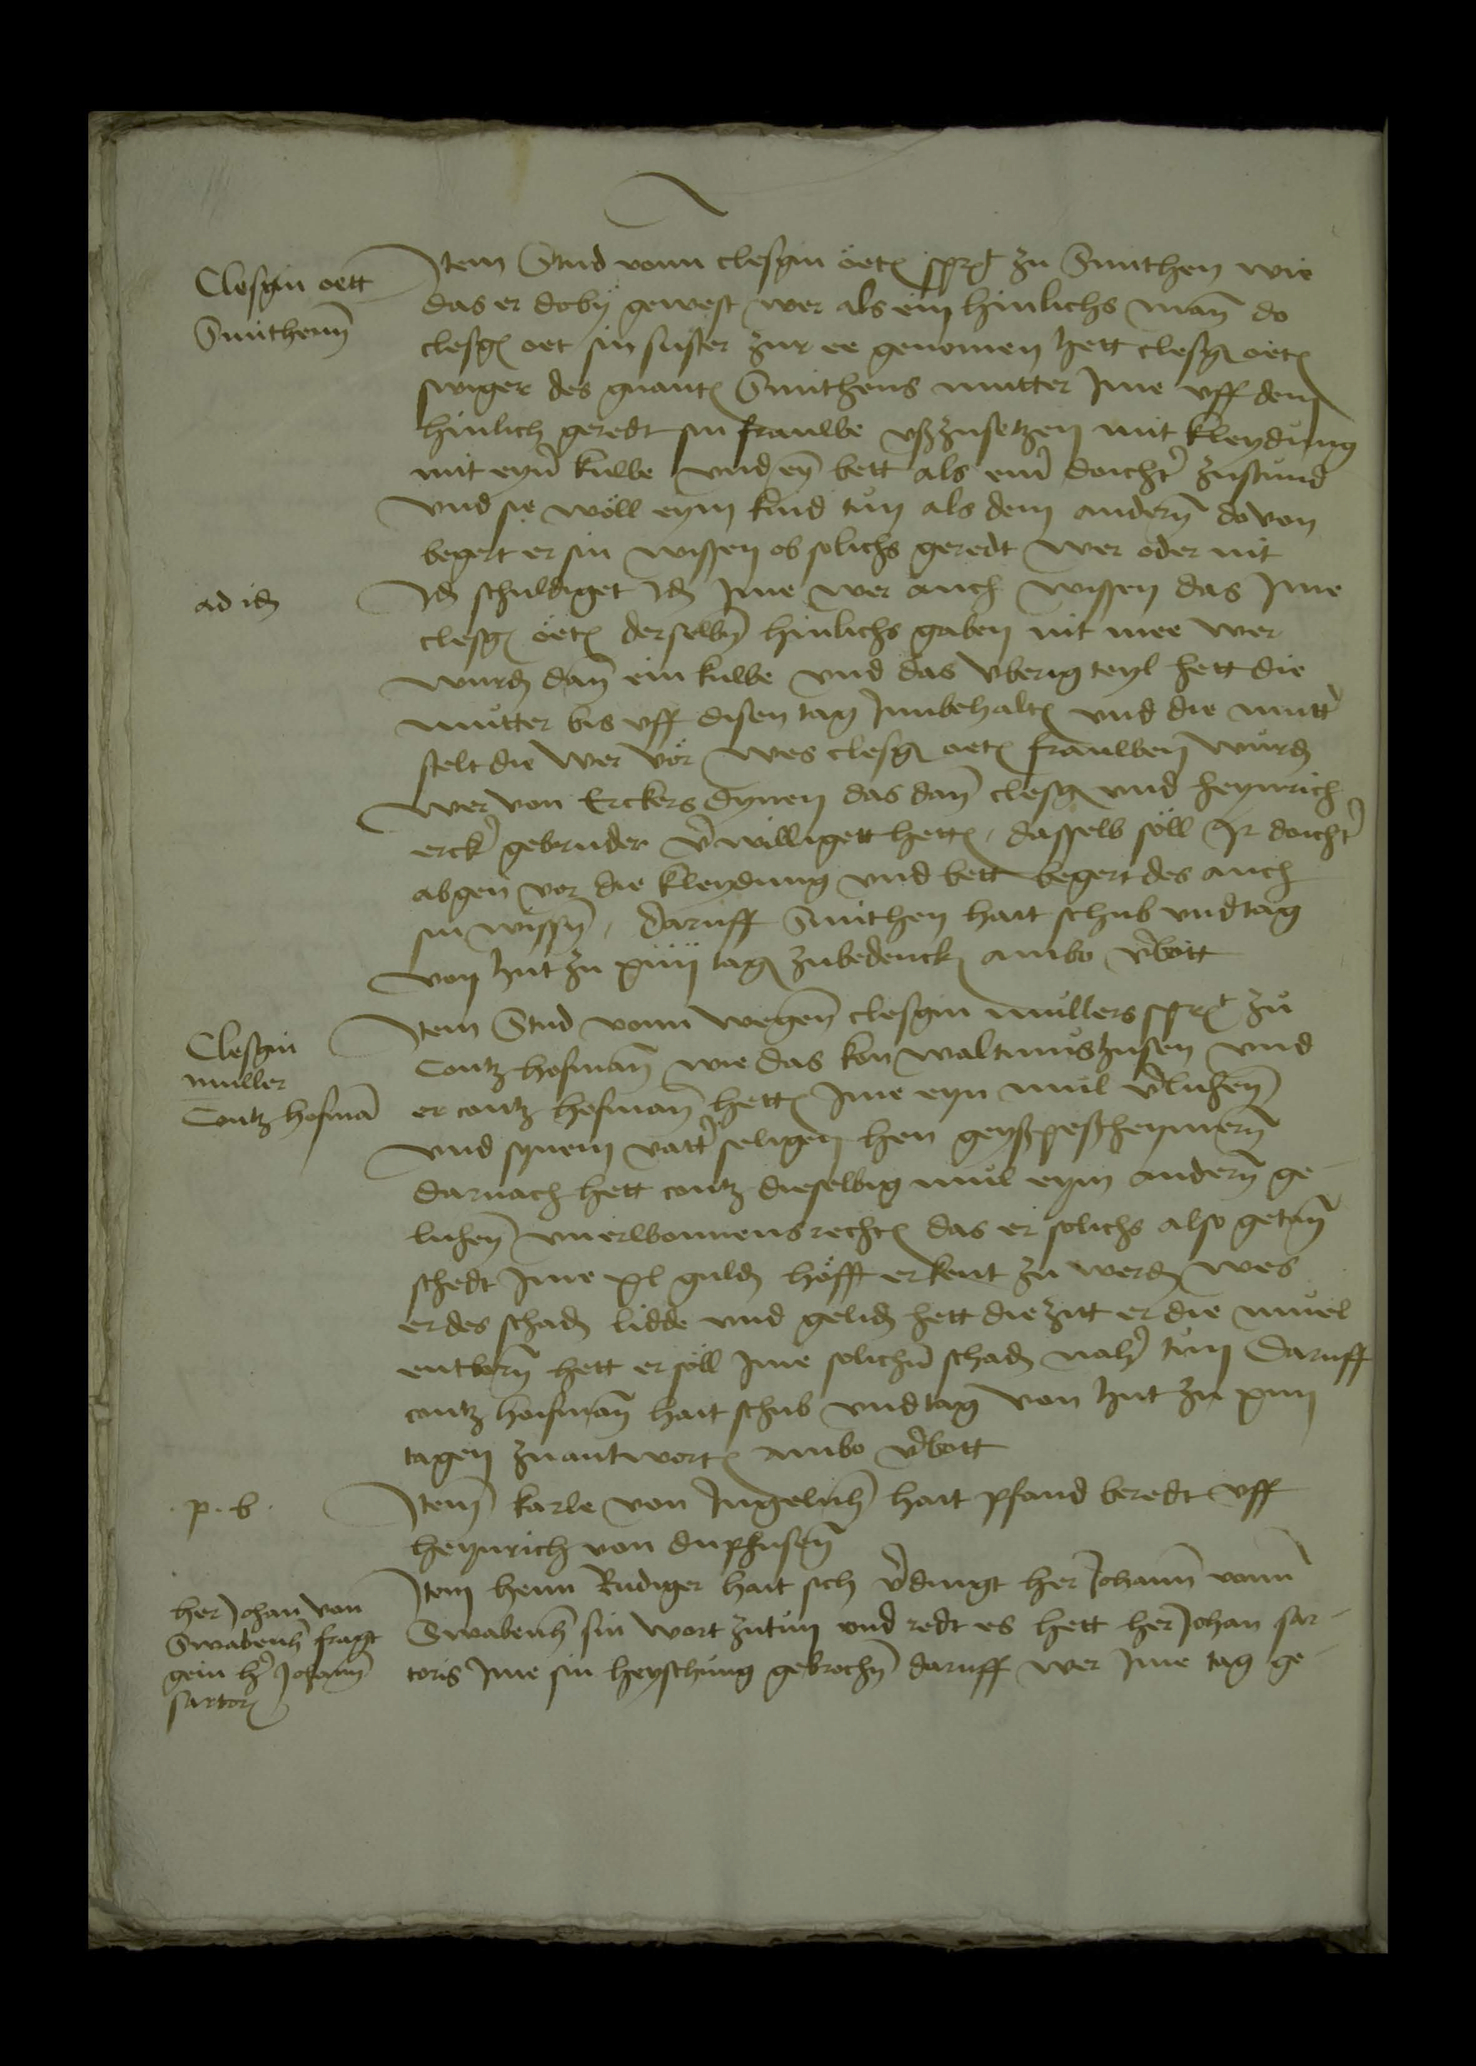 Clesgin oett
Smithenn
Item Stud vonn clesgin öetẽ spricht zu Smithen wie
das er doby gewest wer als ein hinlichs man do
clesgẽ oet sin suster zur ee genomen hett clesgẽ oetẽ
swiger des gnantẽ Smithens mutter Ime vff dem
hinlich geredt sin frauwe vßzusetzen mit kleydung
mit eyner kuwe vnd eyn bett als einer dochter zustund
vnd sie wöll eym kind tun als dem andern do von
begert er sin wissen ob solichs geredt wer oder nit
ad idem
Idem schuldiget Idem Ime wer auch wissen das Ime
clesgẽ öetẽ derselbñ hinlichs gaben nit mee wer
wurdẽ dan ein kuwe vnd das vberig teyl hett die
mutter bis vff disen tag Innbehaltẽ vnd die mutter
stelt die wer vör wes clesgẽ oetẽ frauwen wurdẽ
wer von Erckers dynen das dan clesgẽ vnd heynrich
ercker gebruder verwilligett hettẽ dasselb söll Ir dochter
abgen vor die kleydung vnd bett begert des auch
sin wissñ daruff Smithen hait schub vnd tag
von hut zu xiiii tagẽ zubedenckẽ ambo verbott
Clesgin
muller
Contz hofman
Item Stud vonn wegen clesgin mullers spricht zu
Contz hofman wie das kon waltmußhusen vnd
er contz hofman hettẽ Ime eyn mul verluhen
vnd synem vatter seligen hen geyßpeßheymern
darnach hett contz dieselbig mul eym andern ge-
luhen vnerwonnens rechtẽ das er solichs also getan
schedt Ime xl guldẽ höfft erkent zu werdẽ wes
er des schadẽ lidde vnd gelidẽ hett die zitt er die muel
entbern hett er söll Ime solichen schadẽ naher tun Daruff
contz hoifman hait schub vnd tag von hut zu xiiii
tagen zuantwortẽ ambo verbott
p. b.
Item karle von Ingelnheim hait pfand beredt vff
heynrich von duphusen
her Johan von
Swabenheim fragt
gein her Johann
sartorẽ
Item henn Rudiger hait sich verdingt her Johann vonn
Swabenheim sin wort zutun vnd redt es hett her Johan sar-
toris Ime sin heyschung gebrochñ daruff wer Ime tag ge-